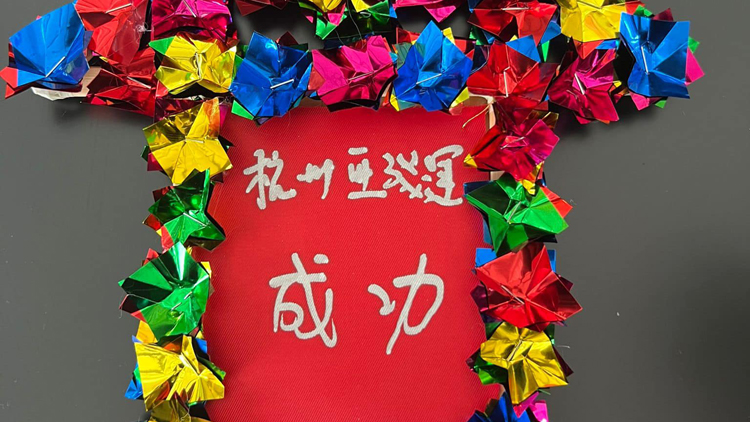 杭州亚残运
成功